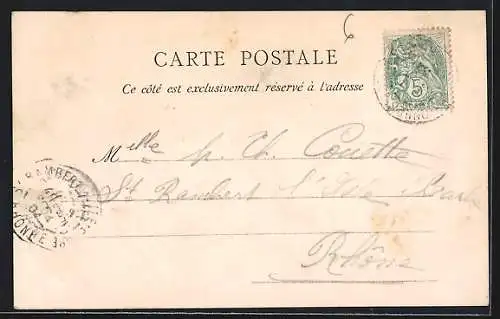 CARTE POSTALE
Ce côté est exclusivement réservé à l'adresse
5
Melle Ch. Couette
St Rambert l'Isle Barbe
Rhône